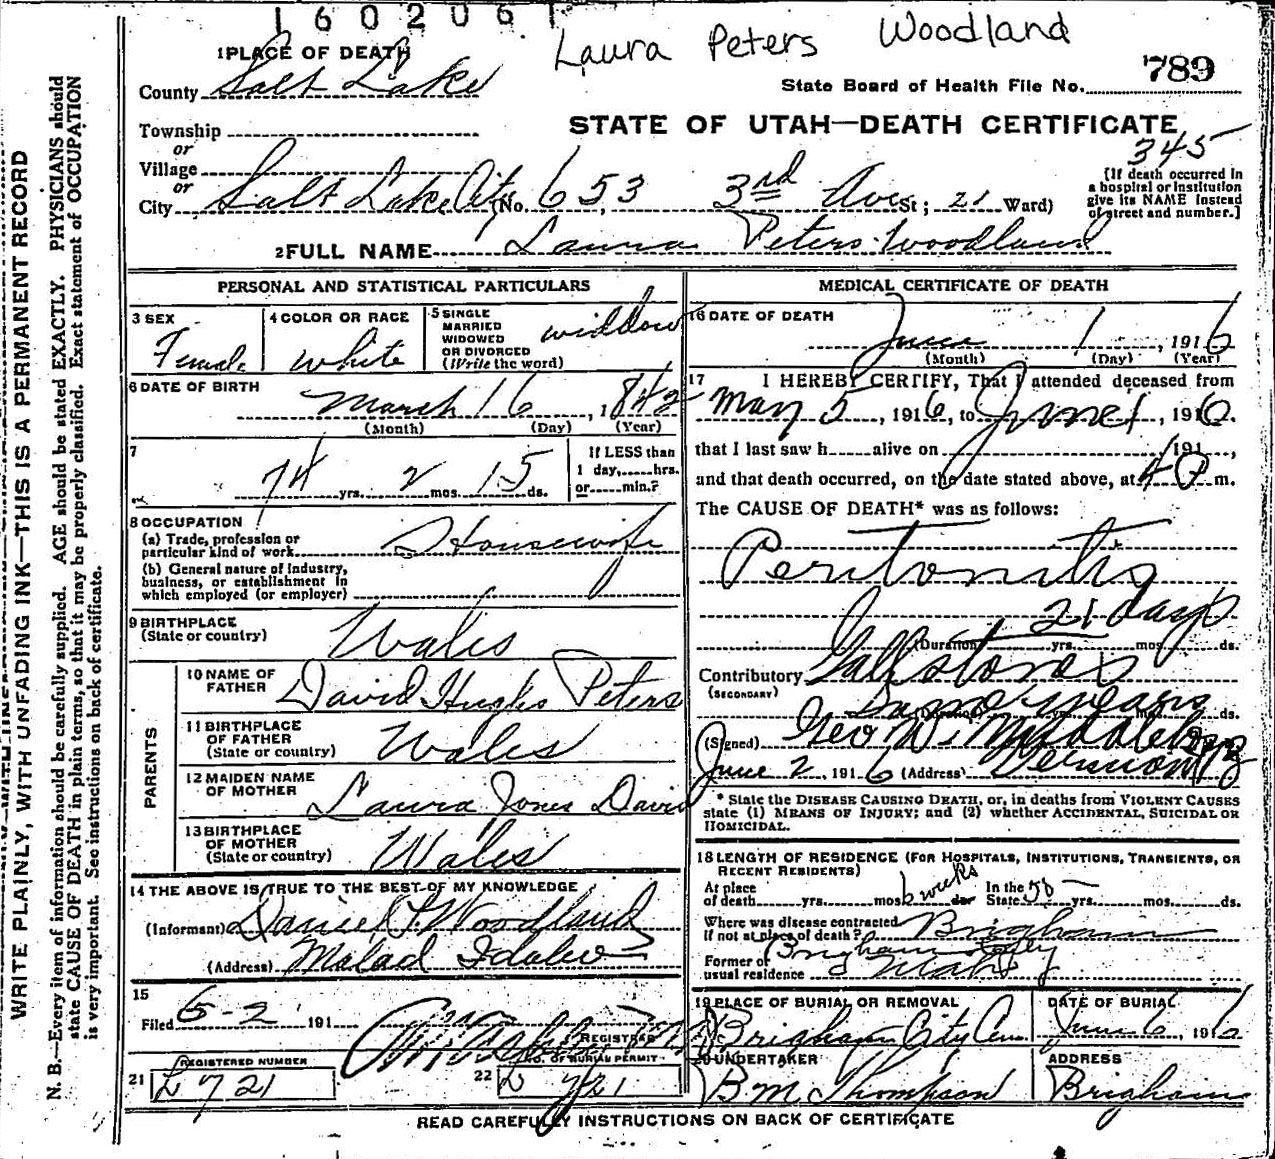 160206
Laura Peters Woodland
1 PLACE OF DEATH
County Salt Lake
State Board of Health File No. 789
Township
or
STATE OF UTAH—DEATH CERTIFICATE
345
Village
or
City Salt Lake City (No. 653, 3rd Ave St; 21 Ward)
[If death occurred in
a hospital or institution
give its NAME instead
of street and number.]
2 FULL NAME Laura Peters Woodland
PERSONAL AND STATISTICAL PARTICULARS
3 SEX
Female
4 COLOR OR RACE
White
5 SINGLE
MARRIED
WIDOWED
OR DIVORCED
(Write the word)
widdow
6 DATE OF BIRTH
March 16, 1842
(Month) (Day) (Year)
7
74 yrs. 2 mos. 15 ds.
If LESS than
1 day, hrs.
or min.?
8 OCCUPATION
(a) Trade, profession or
particular kind of work Housewife
(b) General nature of industry,
business, or establishment in
which employed (or employer)
9 BIRTHPLACE
(State or country) Wales
PARENTS
10 NAME OF
FATHER David Hughs Peters
11 BIRTHPLACE
OF FATHER
(State or country) Wales
12 MAIDEN NAME
OF MOTHER Laura Jones Davis
13 BIRTHPLACE
OF MOTHER
(State or country) Wales
14 THE ABOVE IS TRUE TO THE BEST OF MY KNOWLEDGE
(Informant) Daniel P. Woodland
(Address) Malad Idaho
15
Filed 6-2 191
REGISTRAR
REGISTERED NUMBER
21 L 721
NO. OF BURIAL PERMIT
22 L 721
MEDICAL CERTIFICATE OF DEATH
16 DATE OF DEATH
June 1, 1916
(Month) (Day) (Year)
17 I HEREBY CERTIFY, That I attended deceased from
May 5, 1916, to June 1, 1916.
that I last saw h alive on 191 ,
and that death occurred, on the date stated above, at 4 P m.
The CAUSE OF DEATH* was as follows:
Peritonitis
21 days
(Duration) yrs. mos. ds.
Contributory Gallstones
(SECONDARY)
(Duration) years yrs. mos. ds.
(Signed) Geo W. Middleton
June 2, 1916 (Address)
* State the DISEASE CAUSING DEATH, or, in deaths from VIOLENT CAUSES
state (1) MEANS OF INJURY; and (2) whether ACCIDENTAL, SUICIDAL OR
HOMICIDAL.
18 LENGTH OF RESIDENCE (FOR HOSPITALS, INSTITUTIONS, TRANSIENTS, OR
RECENT RESIDENTS)
At place
of death yrs. mos. 6 weeks ds. In the
State yrs. mos. ds.
Where was disease contracted
if not at place of death? Brigham
Former or
usual residence Brigham City
Utah
19 PLACE OF BURIAL OR REMOVAL
Brigham City Cem
DATE OF BURIAL
June 6, 1916
20 UNDERTAKER
B M Thompson
ADDRESS
Brigham
READ CAREFULLY INSTRUCTIONS ON BACK OF CERTIFICATE
WRITE PLAINLY, WITH UNFADING INK—THIS IS A PERMANENT RECORD
N. B.—Every item of information should be carefully supplied. AGE should be stated EXACTLY. PHYSICIANS should
state CAUSE OF DEATH in plain terms, so that it may be properly classified. Exact statement of OCCUPATION
is very important. See instructions on back of certificate.